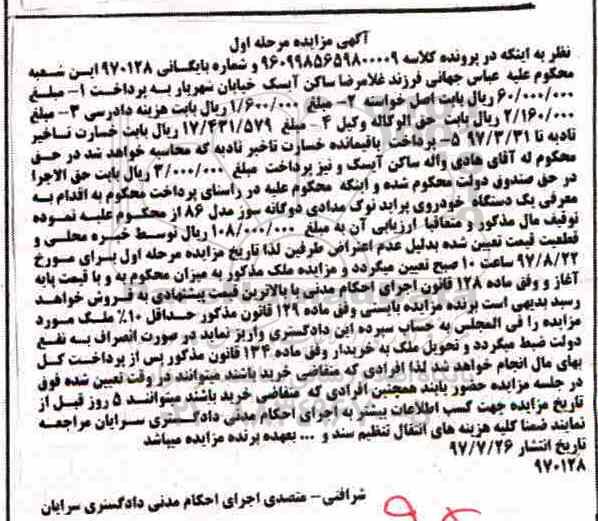 آگهی مزایده مرحله اول
نظر به اینکه در پرونده کلاسه ۹۶۰۹۹۸۵۶۵۹۸۰۰۰۰۹ و شماره بایگانی ۹۷۰۱۲۸ این شعبه
محکوم علیه عباس جهانی فرزند غلامرضا ساکن آیسک خیابان شهریار به پرداخت ۱- مبلغ
۶۰/۰۰۰/۰۰۰ ریال بابت اصل خواسته ۲- مبلغ ۱/۶۰۰/۰۰۰ ریال بابت هزینه دادرسی ۳- مبلغ
۲/۱۶۰/۰۰۰ ریال بابت حق الوکاله وکیل ۴- مبلغ ۱۷/۴۳۱/۵۷۹ ریال بابت خسارت تاخیر
تادیه تا ۹۷/۳/۳۱ ۵- پرداخت باقیمانده خسارت تاخیر تادیه که محاسبه خواهد شد در حق
محکوم له آقای هادی واله ساکن آیسک و نیز پرداخت مبلغ ۳/۰۰۰/۰۰۰ ریال بابت حق الاجرا
در حق صندوق دولت محکوم شده و اینکه محکوم علیه در راستای پرداخت محکوم به اقدام به
معرفی یک دستگاه خودروی پراید نوک مدادی دوگانه سوز مدل ۸۶ از محکوم علیه نموده
توقیف مال مذکور و متعاقبا ارزیابی آن به مبلغ ۱۰۸/۰۰۰/۰۰۰ ریال توسط خبره محلی و
قطعیت قیمت تعیین شده بدلیل عدم اعتراض طرفین لذا تاریخ مزایده مرحله اول برای مورخ
۹۷/۸/۲۲ ساعت ۱۰ صبح تعیین میگردد و مزایده ملک مذکور به میزان محکوم به و با قیمت پایه
آغاز و وفق ماده ۱۲۸ قانون اجرای احکام مدنی با بالاترین قیمت پیشنهادی به فروش خواهد
رسید بدیهی است برنده مزایده بایستی وفق ماده ۱۲۹ قانون مذکور حداقل ۱۰٪ ملک مورد
مزایده را فی المجلس به حساب سپرده این دادگستری واریز نماید در صورت انصراف به نفع
دولت ضبط میگردد و تحویل ملک به خریدار وفق ماده ۱۳۴ قانون مذکور پس از پرداخت کل
بهای مال انجام خواهد شد لذا افرادی که متقاضی خرید باشند میتوانند در وقت تعیین شده فوق
در جلسه مزایده حضور یابند همچنین افرادی که متقاضی خرید باشند میتوانند ۵ روز قبل از
تاریخ مزایده جهت کسب اطلاعات بیشتر به اجرای احکام مدنی دادگستری سرایان مراجعه
نمایند ضمنا کلیه هزینه های انتقال تنظیم سند و ... بعهده برنده مزایده میباشد
تاریخ انتشار ۹۷/۷/۲۶
۹۷۰۱۲۸
شرافتی- متصدی اجرای احکام مدنی دادگستری سرایان